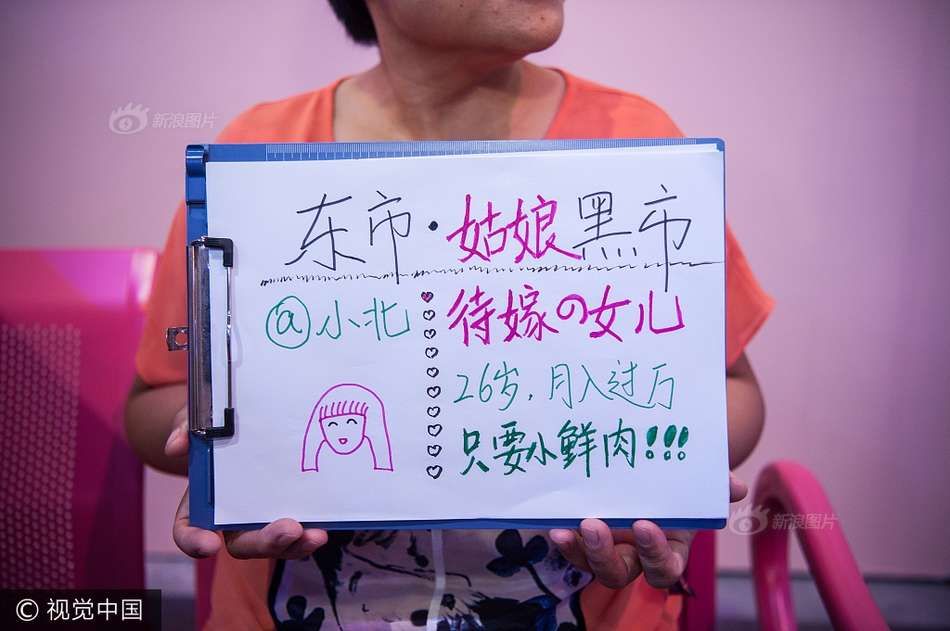 新浪图片
东市·姑娘黑市
@小北
待嫁の女儿
26岁.月入过万
只要小鲜肉!!!
新浪图片
© 视觉中国